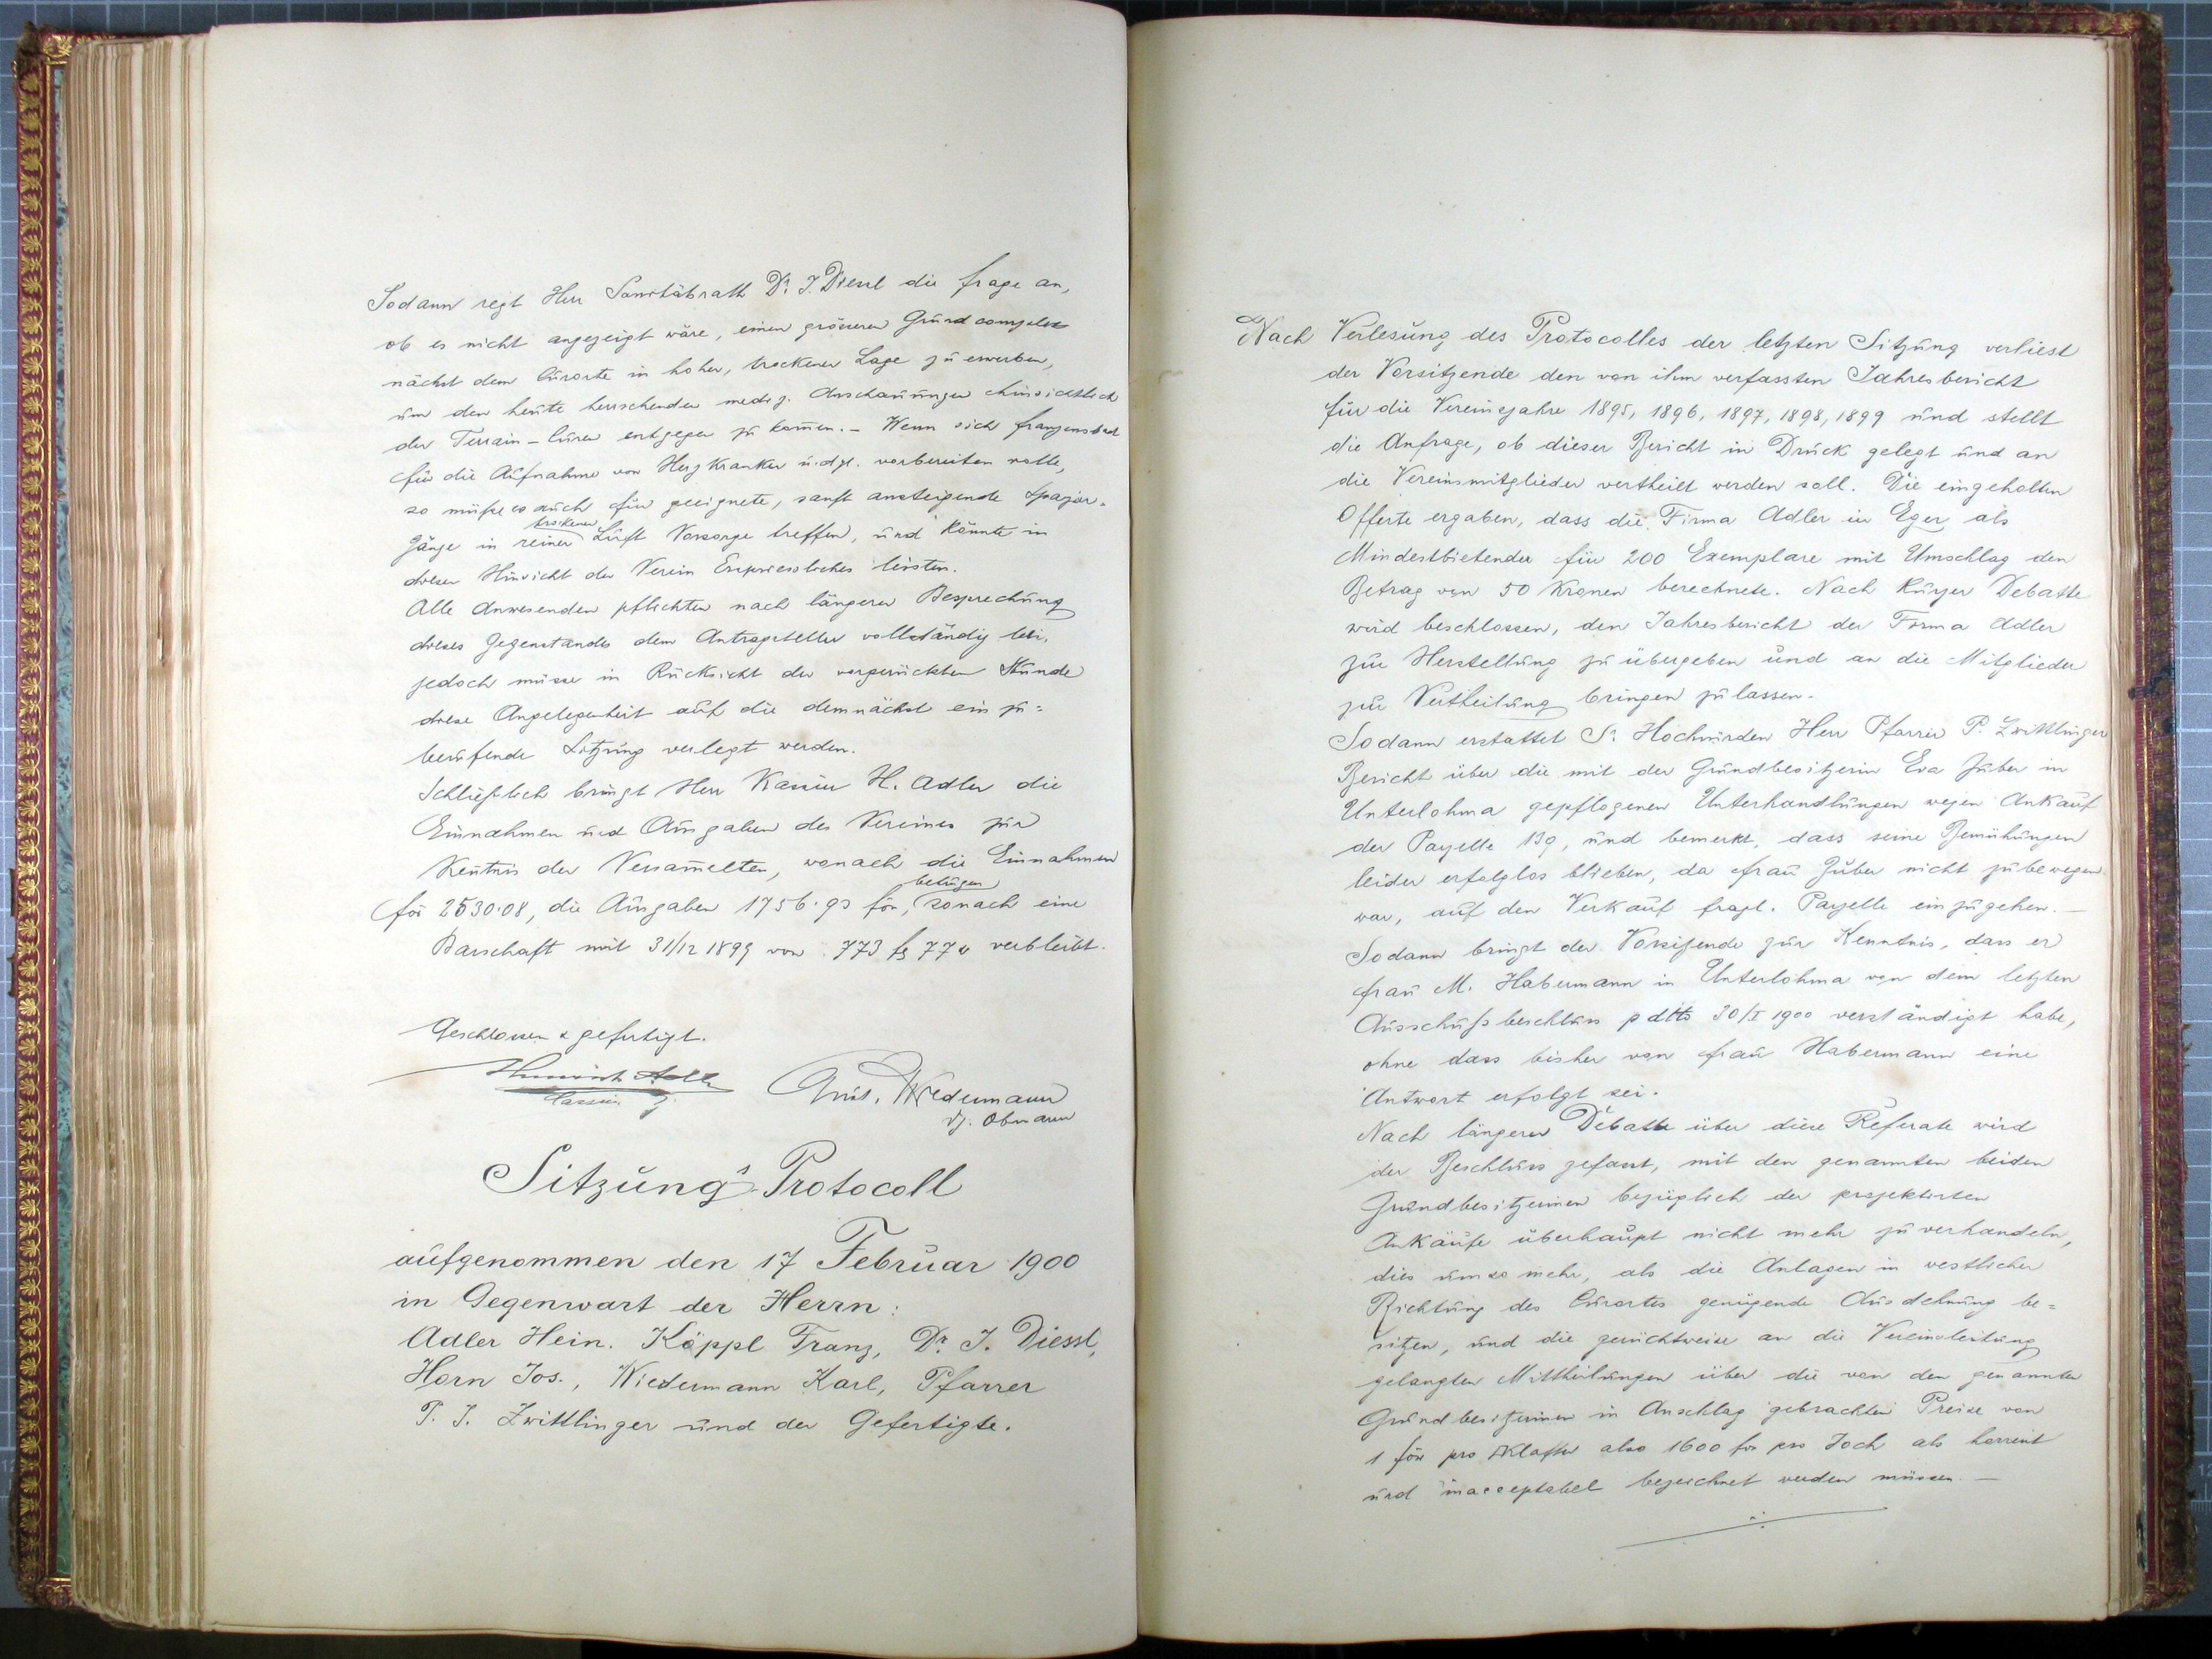 Sodann regt Herr Sanitätsrath Dr. J. Diessl die Frage an,
ob es nicht angezeigt wäre, einen grösseren Grundcomplex
nächst dem Curorte in hoher, trockener Lage zu erwerben,
um den heute herrschenden mediz. Anschauungen hinsichtlich
der Terrain-Curen entgegen zu kom̅en. – Wenn sich Franzensbad
für die Aufnahme von Herzkranken u. dgl. vorbereiten wolle,
so müße es auch für geeignete, sanft ansteigende Spazier-
trockener
gänge in reiner Luft Vorsorge treffen, und könnte in
dieser Hinsicht der Verein Erspriessliches leisten.
Alle Anwesenden pflichten nach längerer Besprechung
dieses Gegenstandes dem Antragsteller vollständig bei,
jedoch müsse in Rücksicht der vorgerückten Stunde
diese Angelegenheit auf die demnächst einzu=
berufende Sitzung verlegt werden.
Schließlich bringt Herr Kassier H. Adler die
Einnahmen und Ausgaben des Vereines zur
Kentnis der Versam̅elten, wonach die Einnahmen
betrugen
für 2530.08, die Ausgaben 1756.93 fr, sonach eine
Barschaft mit 31/12 1899 von 773 fl 77 x verbleibt.
Geschlossen & gefertigt.
Heinrich Adler
Cassier
Gust. Wiedermann
dz. Obmann
Sitzungs-Protocoll
aufgenommen den 17 Februar 1900
in Gegenwart der Herrn:
Adler Hein. Köppl Franz, Dr. J. Diessl,
Horn Jos., Wiedermann Karl, Pfarrer
P. J. Zwittlinger und der Gefertigte.
Nach Verlesung des Protocolles der letzten Sitzung verliest
der Vorsitzende den von ihm verfassten Jahresbericht
für die Vereinsjahre 1895, 1896, 1897, 1898, 1899 und stellt
die Anfrage, ob dieser Bericht in Druck gelegt und an
die Vereinsmitglieder vertheilt werden soll. Die eingeholten
Offerte ergaben, dass die Firma Adler in Eger als
Mindestbietender für 200 Exemplare mit Umschlag den
Betrag von 50 Kronen berechnete. Nach kurzer Debatte
wird beschlossen, den Jahresbericht der Firma Adler
zur Herstellung zu übergeben und an die Mitglieder
zur Vertheilung bringen zu lassen.
Sodann erstattet Sr. Hochwürden Herr Pfarrer P. Zwittlinger
Bericht über die mit der Grundbesitzerin Eva Zuber in
Unterlohma gepflogenen Unterhandlungen wegen Ankauf
der Parzelle 139, und bemerkt, dass seine Bemühungen
leider erfolglos blieben, da Frau Zuber nicht zu bewegen
war, auf den Verkauf fragl. Parzelle einzugehen. –
Sodann bringt der Vorsitzende zur Kenntnis, dass er
Frau M. Habermann in Unterlohma von dem letzten
Ausschußbeschluss p dtto 30/I 1900 verständigt habe,
ohne dass bisher von Frau Habermann eine
Antwort erfolgt sei.
Nach längerer Debatte über diese Referate wird
der Beschluss gefasst, mit den genannten beiden
Grundbesitzerinen bezüglich der projektirten
Ankäufe überhaupt nicht mehr zu verhandeln,
dies umso mehr, als die Anlagen in westlicher
Richtung des Curortes genügende Ausdehnung be=
sitzen, und die gerüchtweise an die Vereinsleitung
gelangten Mittheilungen über die von den genannten
Grundbesitzerinen in Anschlag gebrachten Preise von
1 fr pro Klafter also 1600 fr pro Joch als horrent
und inacceptabel bezeichnet werden müssen. –